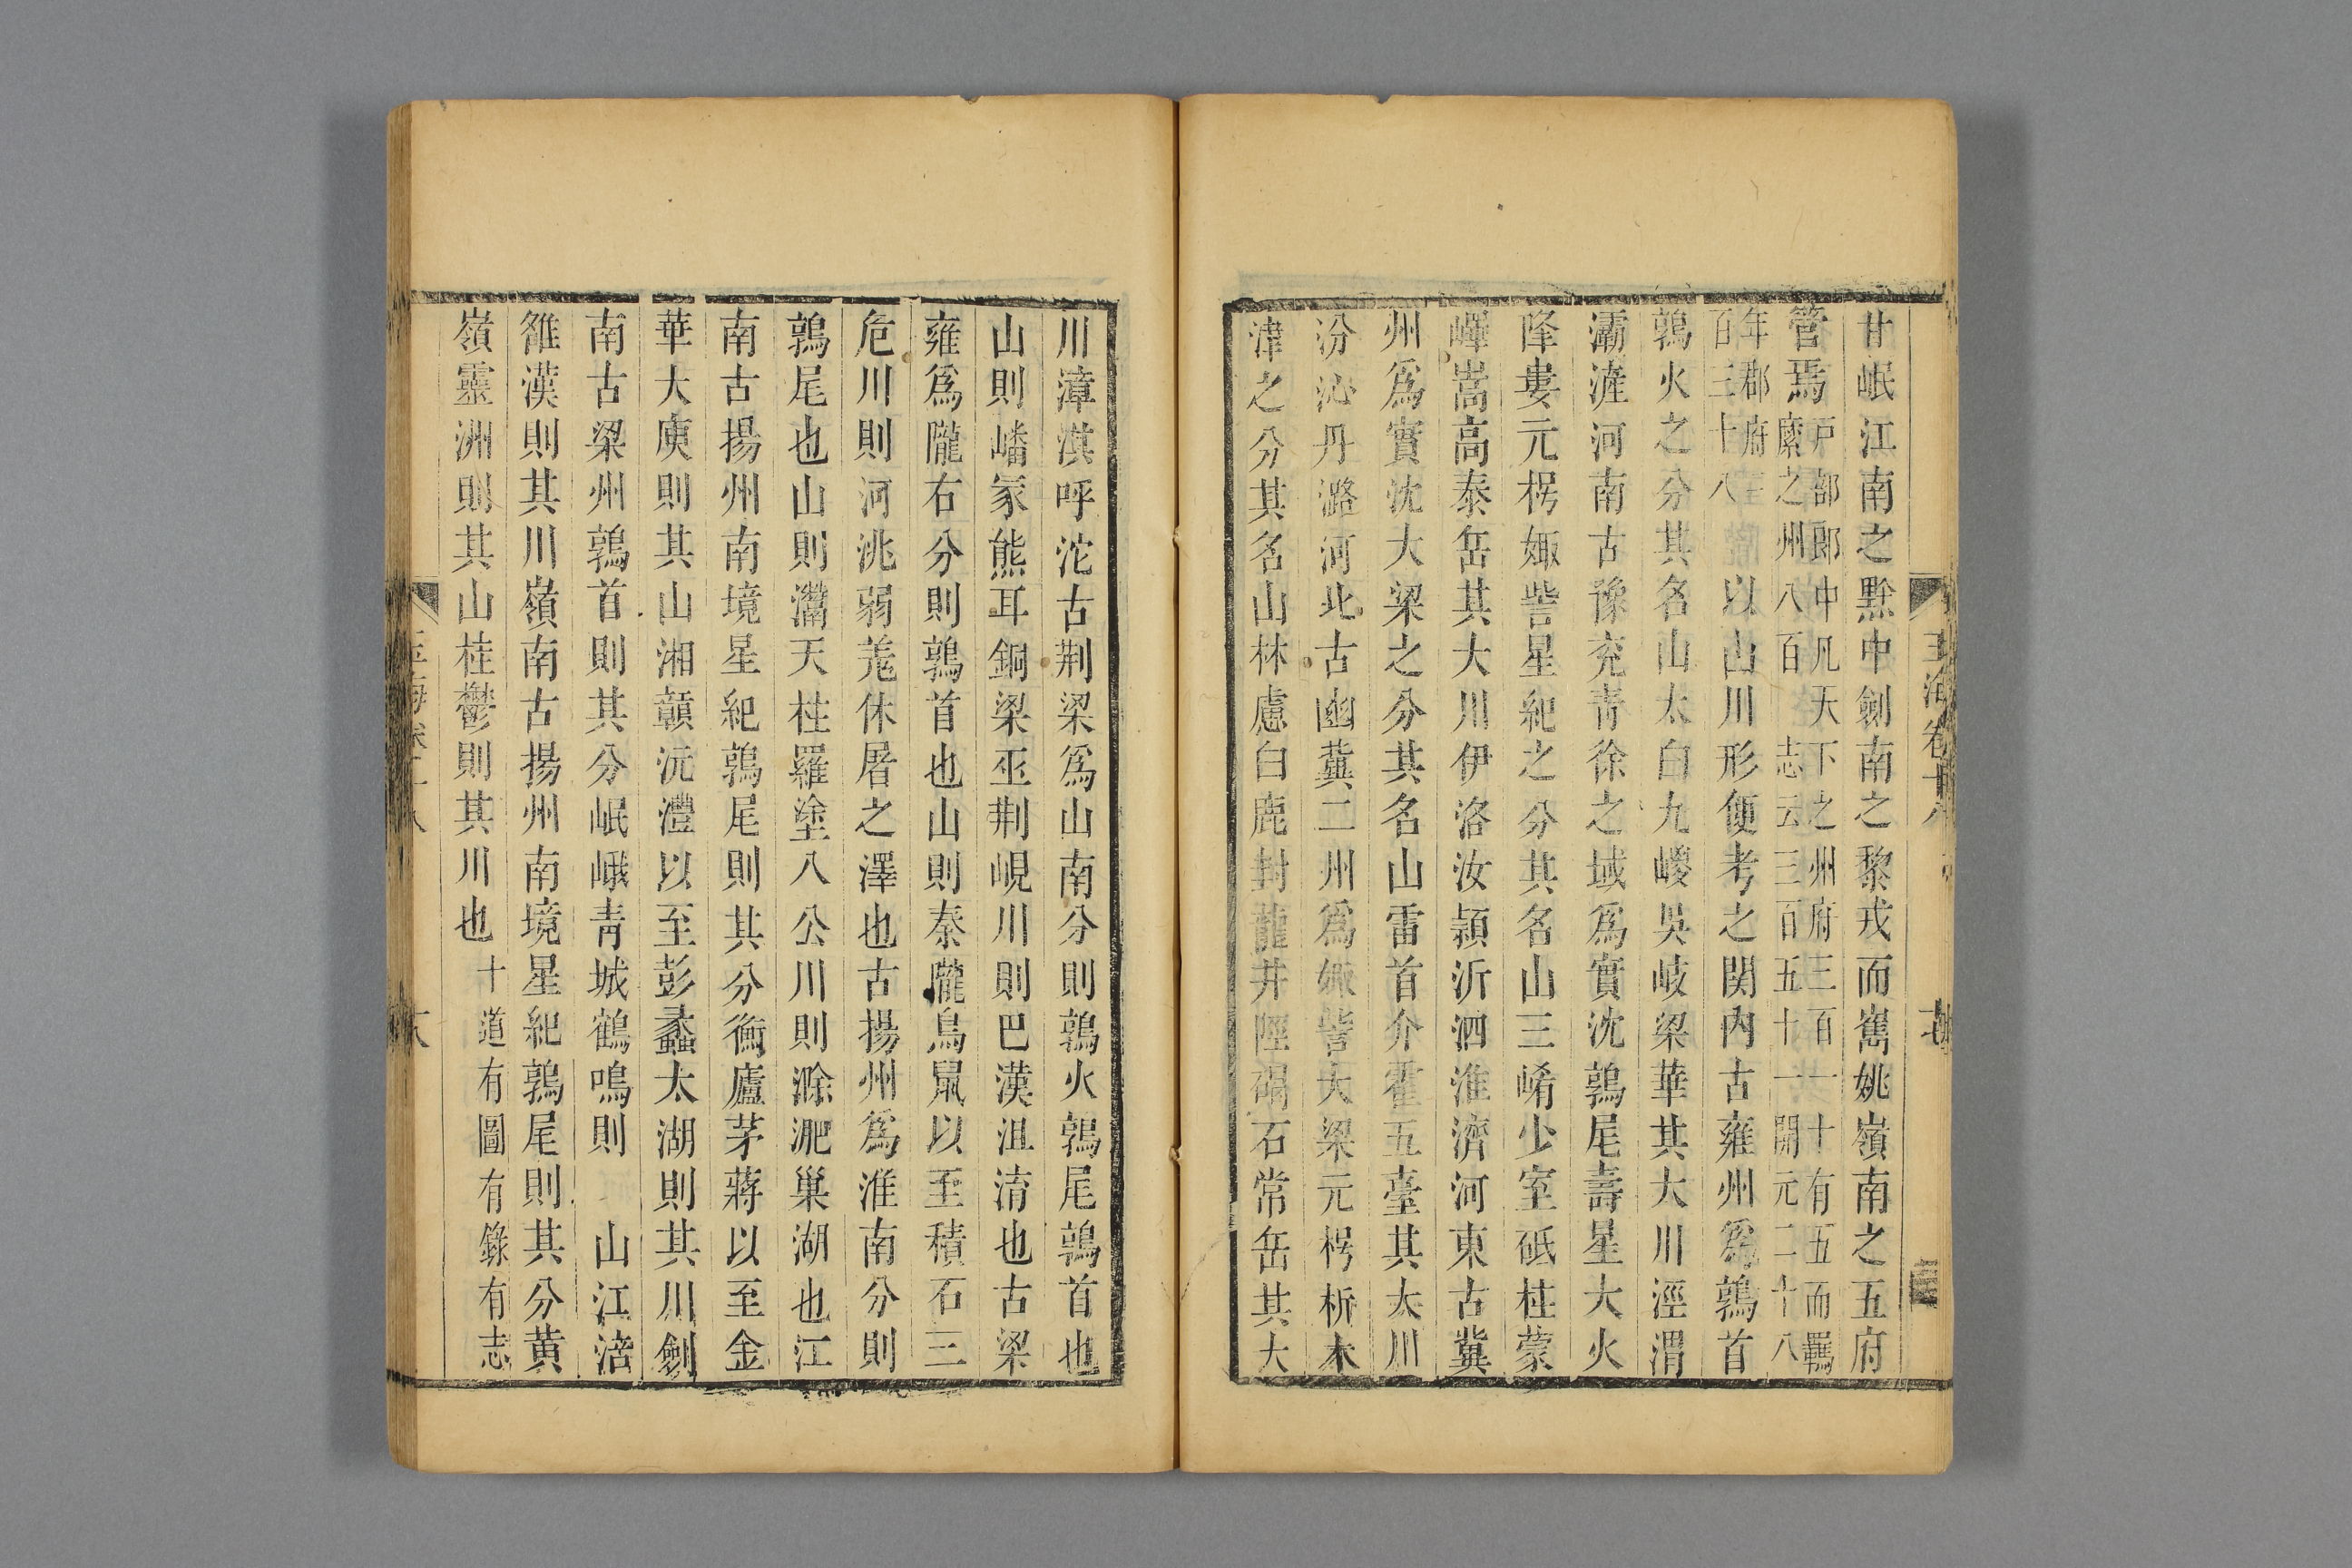 甘岷江南之黔中劍南之黎戎而嶲姚嶺南之五府
管焉
戸部郎中凡天下之州府三百一十有五而羈
縻之州八百 志云三百五十一 開元二十八
年郡府三
百三十八
以山川形便考之関内古雍州爲鶉首
鶉火之分其名山太白九嵕吳岐梁華其大川涇渭
灞滻河南古豫兖青徐之域爲實沈鶉尾壽星大火
降婁元枵娵訾星紀之分其名山三崤少室砥柱蒙
嶧嵩高泰岳其大川伊洛汝潁沂泗淮濟河東古冀
州爲實沈大梁之分其名山雷首介霍五臺其大川
汾沁丹潞河北古幽冀二州爲娵訾大梁元枵析木
津之分其名山林慮白鹿封龍井陘碣石常岳其大
玉海卷十八
川漳淇呼沱古荆梁爲山南分則鶉火鶉尾鶉首也
山則嶓冢熊耳銅梁巫荆峴川則巴漢沮淯也古梁
雍爲隴右分則鶉首也山則秦隴鳥鼠以至積石三
危川則河洮弱羗休屠之澤也古揚州爲淮南分則
鶉尾也山則灊天柱羅塗八公川則滁淝巢湖也江
南古揚州南境星紀鶉尾則其分衡廬茅蔣以至金
華大庾則其山湘贛沅澧以至彭蠡太湖則其川劍
南古梁州鶉首則其分岷峨青城鶴鳴則 山江涪
雒漢則其川嶺南古揚州南境星紀鶉尾則其分黄
嶺靈洲則其山桂鬱則其川也
十道有圖有錄有志